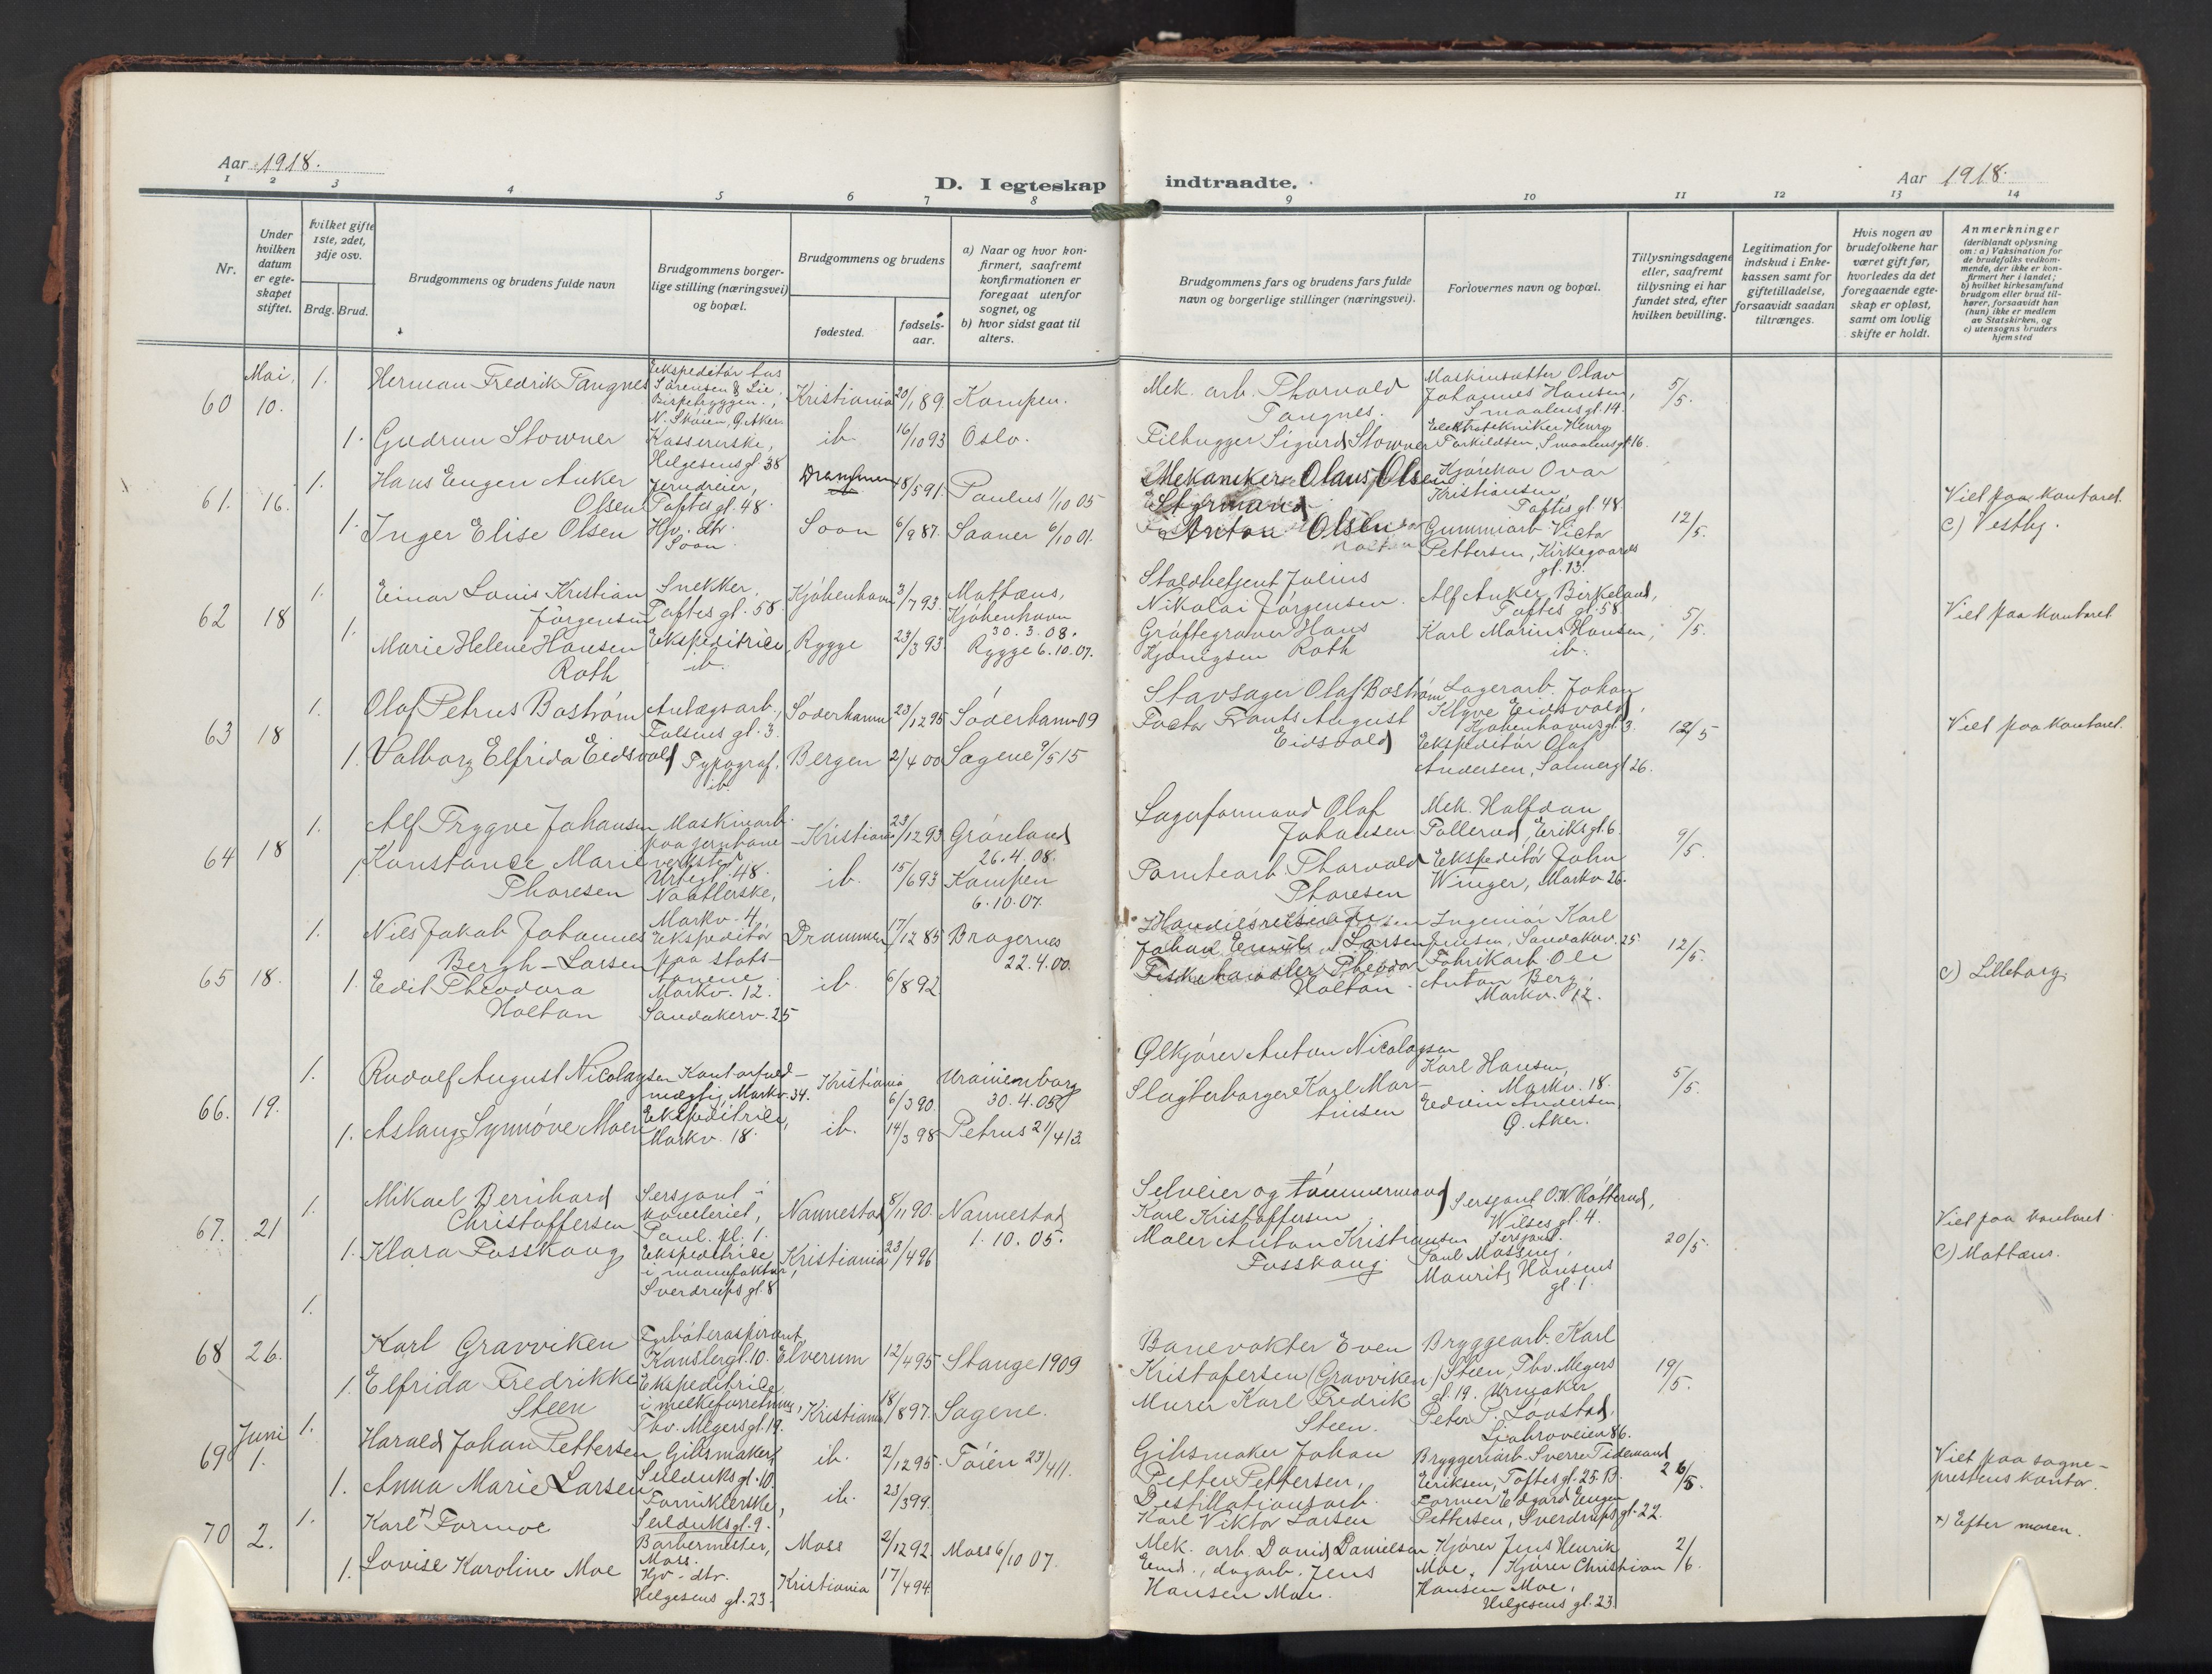 Aar 1918.
D. I egteskap indtraadte.
Aar 1918.
1 2 3 4 5 6 7 8 9 10 11 12 13 14
Nr.
Under hvilken datum er egteskapet stiftet.
Hvilket gifte 1ste, 2det, 3dje osv.
Brdg. Brud.
Brudgommens og brudens fulde navn
Brudgommens borgerlige stilling (næringsvei) og bopæl.
Brudgommens og brudens
fødested.
fødselsaar.
a) Naar og hvor konfirmert, saafremt konfirmationen er foregaat utenfor sognet, og
b) hvor sidst gaat til alters.
Brudgommens fars og brudens fars fulde navn og borgerlige stillinger (næringsvei).
Forlovernes navn og bopæl.
Tillysningsdagene eller, saafremt tillysning ei har fundet sted, efter hvilken bevilling.
Legitimation for indskud i Enkekassen samt for giftetilladelse, forsaavidt saadan tiltrænges.
Hvis nogen av brudefolkene har været gift før, hvorledes da det foregaaende egteskap er opløst, samt om lovlig skifte er holdt.
Anmerkninger
(deriblandt oplysning om: a) Vaksination for de brudefolks vedkommende, der ikke er konfirmert her i landet;
b) hvilket kirkesamfund brudgom eller brud tilhører, forsaavidt han (hun) ikke er medlem av Statskirken, og
c) utensogns bruders hjemsted
60 Mai 10. 1. Herman Fredrik Tangnes
Ekspeditør hos Sørensen & Lie, N. Skøien, Ø. Aker.
Kristiania 20/1 89. Kampen.
Mek. arb. Thorvald Tangnes.
Maskinsætter Olav Johannes Hansen, Smaalensgt. 14.
5/5.
1. Gudrun Stowner
Kassererske, Helgesens gt. 38
ib. 16/10 93 Oslo.
Filhugger Sigurd Stowner
Elektrotekniker Henry Torkildsen, Smaalensgt. 16.
61. 16. 1. Hans Eugen Anker Olsen
Jerndreier, Toftes gt. 48.
Drammen 18/5 91. Paulus 1/10 05
Mekaniker Olaus Olsen
Kristiansen, Toftes gt. 48.
12/5.
Viet paa kontoret.
c) Vestby.
1. Inger Elise Olsen
Hjv. dtr. Soon
Soon 6/9 87. Saaner 6/10 01.
Styrmand Anton Olsen
Gummiarb. Victor Pettersen, Kirkegaards gt. 13.
62 18 1. Einar Louis Kristian Jørgensen
Snekker, Toftes gt. 58.
Kjøbenhavn 3/7 93. Mattæus, Kjøbenhavn 30.3.08.
Staldbetjent Julius Nikolai Jørgensen.
Alf Anker Birkeland, Toftes gt. 58
5/5.
Viet paa kontoret
1. Marie Helene Hansen Roth
Ekspeditrice ib.
Rygge 23/3 93. Rygge 6.10.07.
Grøftegraver Hans Roth
Karl Marius Hansen, ib.
63 18 1. Olaf Petrus Boström
Anlægsarb., Falsens gt. 3.
Söderhamn 23/12 95 Söderhamn 09
Stavsager Olaf Boström
Lagerarb. Johan Klyve Eidsvold, Kjøbenhavnsgt. 3.
12/5
Viet paa kontoret.
1. Valborg Elfrida Eidsvold
Typograf, ib.
Bergen 2/4 00 Sagene 9/5 15
Factor Frants August Eidsvold
Ekspeditør Olaf Andersen, Sannergt. 26.
64 18 1. Alf Trygve Johansen
Maskinarb. paa jernbane verksted Urtegt. 48.
Kristiania 23/12 93 Grønland 26.4.08.
Lagerformand Olaf Johansen
Mek. Halfdan Pollerud, Eriks gt. 6.
9/5.
1. Konstance Marie Thoresen
Naatlerske, Markv. 4.
ib. 15/6 93 Kampen 6.10.07.
Tomtearb. Thorvald Thoresen
Ekspeditør John Winger, Markv 26.
65 18. 1. Nils Jakob Johannes Bergh-Larsen
Ekspeditør paa statsbanene Markv. 12.
Drammen 17/12 85 Bragernes 22.4.00.
Handelsreisende Johan Emil Larsen
Ingeniør Karl Jensen, Sandakerv. 25
12/5.
c) Lilleborg.
1. Edit Theodora Holtan
Sandakerv. 25
ib. 6/8 92
Fiskehandler Theodor Holtan
Fabrikarb. Ole Anton Berg, Markv. 12.
66. 19. 1. Rudolf August Nicolaysen
Kontorfuldmægtig, Markv. 34.
Kristiania 6/3 90. Uranienborg 30.4.05
Ølkjører Anton Nicolaysen
Karl Hansen, Markv. 18.
5/5.
1. Aslaug Synnøve Moen
Ekspeditrice, Markv. 18.
ib. 14/3 98 Petrus 21/4 13.
Slagterborger Karl Martinsen
Edvin Andersen, Ø. Aker.
67. 21 1. Mikael Bernhard Christoffersen
Sersjant i kavaleriet, Paul. pl. 1.
Nannestad 8/11 90. Nannestad 1.10.05.
Selveier og tømmermand Karl Kristoffersen
Sersjant O.W. Røtterud, Wilses gt. 4.
20/5.
Viet paa kontoret
c) Mattæus.
1. Klara Fosskaug
Ekspeditrice i manufaktur, Sverdrups gt. 8
Kristiania 23/4 96
Maler Anton Kristiansen Fosskaug.
Sersjant Paul Massing, Maurits Hansens gt. 1.
68 26. 1. Karl Gravviken
Fyrbøteraspirant, Kanslergt. 10.
Elverum 12/4 95 Stange 1909
Banevokter Even Kristofersen (Gravviken)
Bryggearb. Karl Steen, Thv. Meyers gt. 19.
19/5.
1. Elfrida Fredrikke Steen
Ekspeditrice i melkeforretning, Thv. Meyers gt. 19.
Kristiania 18/8 97. Sagene.
Murer Karl Fredrik Steen.
Urmaker Peter P. Løvstad, Ljabroveien 86.
69 Juni 1. 1. Harald Johan Pettersen
Gibsmaker, Seilduksgt. 10.
ib. 2/12 95. Tøien 23/4 11.
Gibsmaker Johan Petter Pettersen,
Bryggeriarb. Sverre Tidemand Eriksen, Toftes gt. 25.
26/5.
Viet paa sogneprestens kontor.
1. Anna Marie Larsen
Forniklerske, Seilduksgt. 9.
ib. 23/3 99.
Destillationsarb. Karl Viktor Larsen
Former Edgard Eugen Pettersen, Sverdrups gt. 22.
70 2. 1. Karl x) Formoe
Barbermester, Moss.
Moss 2/12 92. Moss 6/10 07.
Mek. arb. David Danielsen
Kjører Jens Henrik Moe.
2/6.
x) Efter moren.
1. Lovise Karoline Moe
Hjv. dtr. Helgesens gt. 23.
Kristiania 17/4 94.
Eiend., dagarb. Jens Hansen Moe.
Kjører Christian Hansen Moe, Helgesens gt. 23.